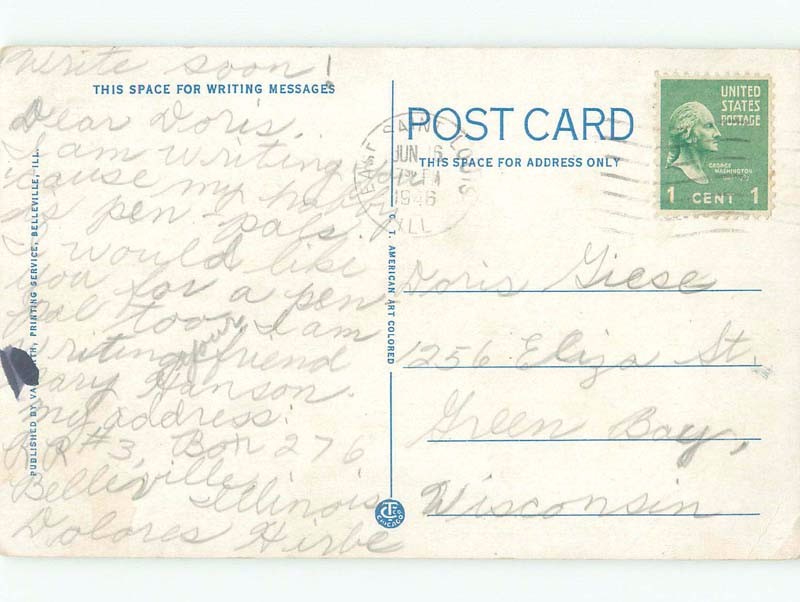 Write soon!
THIS SPACE FOR WRITING MESSAGES
Dear Doris,
I am writing you
'cause my hobby
is pen-pals.
I would like
you for a pen
pal too. I am
writing your friend
Mary Hanson.
my address:
R R #3, Box 276
Belleville, Illinois
Dolores Hirbe
PUBLISHED BY PRINTING SERVICE, BELLEVILLE, ILL.
C. T. AMERICAN ART COLORED
CHICAGO
POST CARD
THIS SPACE FOR ADDRESS ONLY
EAST SAINT LOUIS
JUN 16
PM
1946
ILL
UNITED
STATES
POSTAGE
GEORGE
WASHINGTON
1 CENT 1
Doris Giese
1256 Eliza St.
Green Bay,
Wisconsin